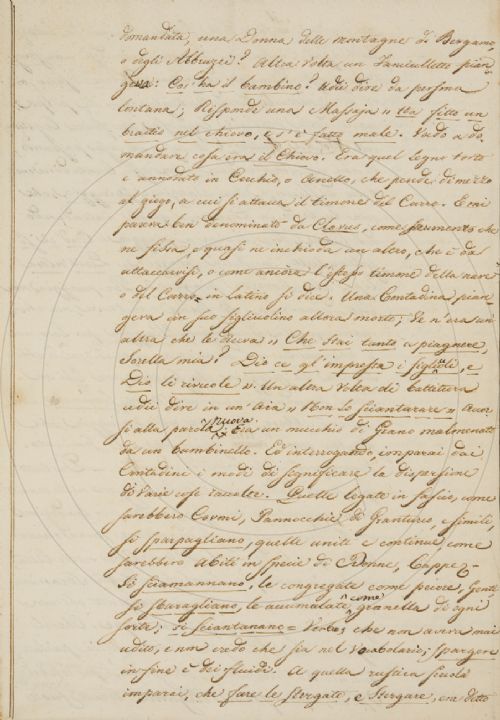 domandata, una Donna delle montagne di Bergamo,
o degli Abbruzzi? Altra volta un Fanciulletto pian-
geva: Cos'ha il bambino? Udii dire da persona
lontana; Risponde una Massaja " Ha fitto un
braccio nel chiovo, e s'è fatto male. Vado a do-
mandare cosa era il Chiovo. Era quel legno torto
e annodato in Cerchio, o Anello, che pende di mezzo
al giogo, a cui si attacca il timone del Carro. E mi
pareva ben denominato da Clavus, come strumento che
ne fissa, e quasi ne inchioda un altro, che è da
attaccarvisi, o come ancora l'istesso timone della nave
o del Carro in latino si dice. Una Contadina pian-
geva un suo figliuolino allora morto; Ve n'era un'
altra che le diceva " Che stai tanto a piagnere,
Sorella mia? Dio ce gl'impresta i figliuoli, e
Dio li rivuole ". Un'altra volta di battitura
udii dire in un'Aia " Non lo sciantarare " Accor-
si alla parola nuova: Era un mucchio di Grano malmenato
da un bambinello. Ed interrogando, imparai dai
Contadini i modi di significare la dispersione
di varie cose raccolte. Quelle legate in fascio, come
sarebbero Covoni, Pannocchie di Granturco, e simili
si sparpagliano, quelle unite e continue, come
sarebbero Abiti in specie di Donne, Cappe
si sciamannano, le congregate come pecore, Gente
si sbaragliano, le accumulate, come granella di ogni
sorta; si sciantanano = Verbo, che non aveva mai
udito, e non credo che sia nel Vocabolario; spargere
in fine è dei fluidi. A quella rustica scuola
imparai, che fare le stergate, e stergare, era detto